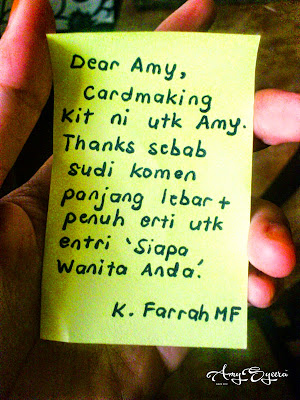 Dear Amy,
Cardmaking
Kit ni utk Amy.
Thanks sebab
sudi komen
panjang lebar +
penuh erti utk
entri 'Siapa
Wanita Anda'.
K. Farrah MF
Amy Syeera